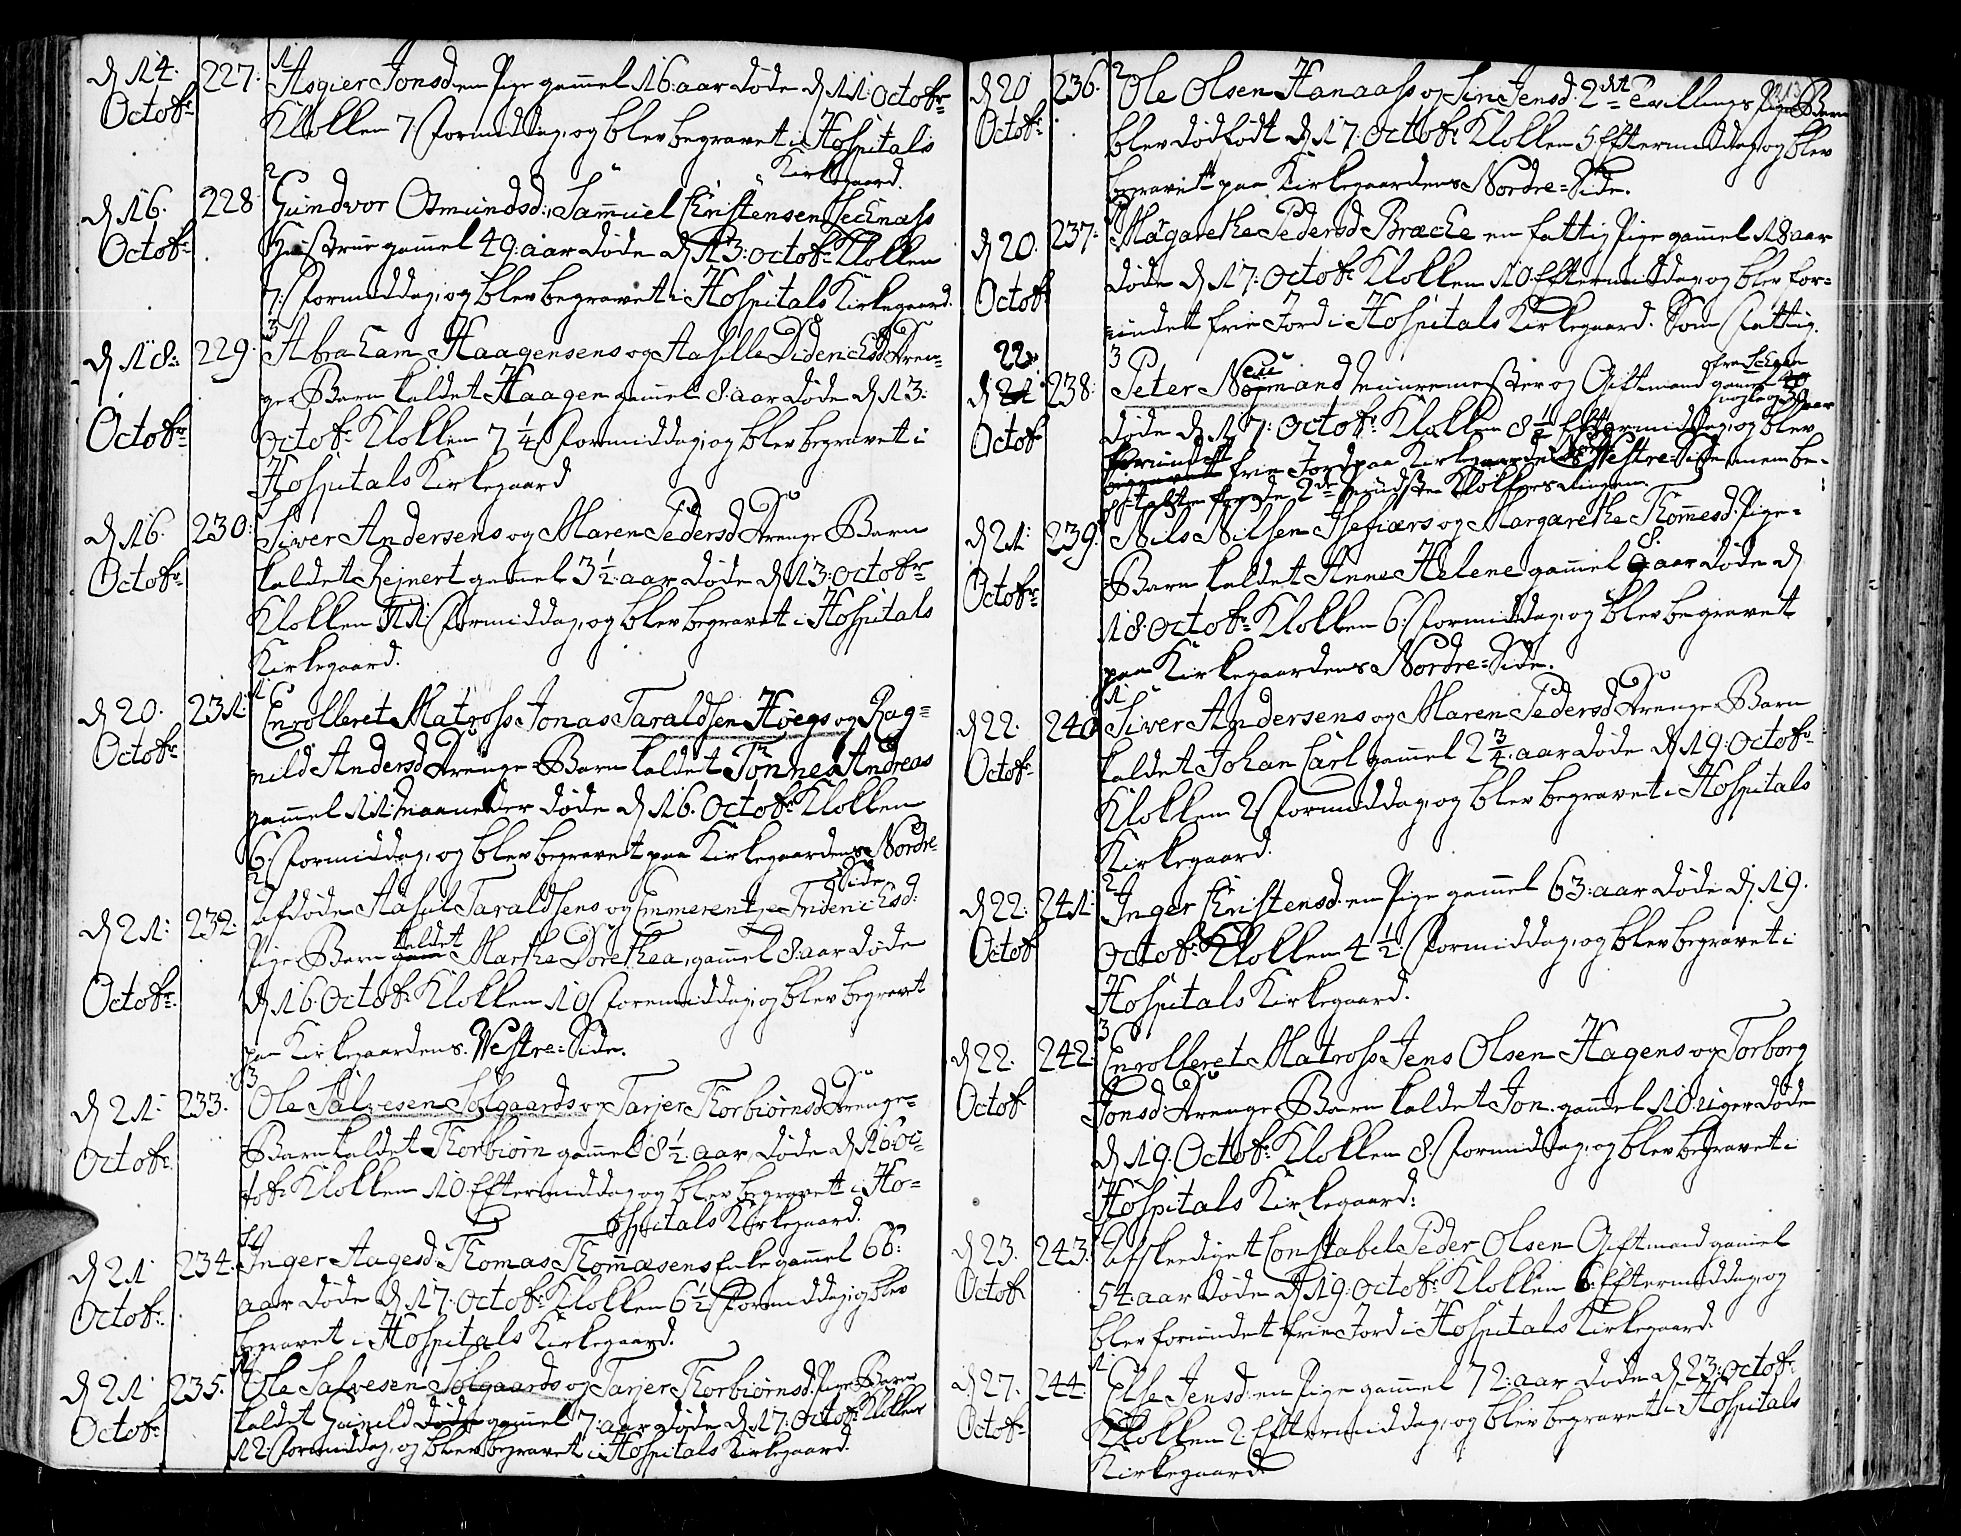 d. 14. Octobr. 227: 1 Asgier Jonsd: en Pige gamel 16: aar døde d. 11: Octobr.
Klokken 7: Formiddag, og blev begravet i Hospitals
Kirkegaard.
d. 16. Octobr. 228 2 Gundvor Osmundsd:, Samuel Christensen
Hustrue gamel 49: aar døde d. 13: Octobr. Klokken
7: Formiddag, og blev begravet i Hospitals Kirkegaard.
d. 18: Octobr. 229. 3 Abraham Haagensens og Aasille Diderichsd Dren-
ge Barn kaldet Haagen gamel 8: aar døde d. 13:
Octobr. Klokken 7 1/4 Formiddag, og blev begravet i
Hospitals Kirkegaard
d. 16. Octobr. 230: Siver Andersens og Maren Pedersd Drenge Barn
kaldet Rejnert gamel 3 1/2 aar døde d. 13: Octobr.
Klokken 11: Formiddag, og blev begravet i Hospitals
Kirkegaard.
d. 20. Octobr. 231: 1 Enrolleret Matross Jonas Taraldsen Høegs og Rag=
nild Andersd Drenge Barn kaldet Tønnes Andreas
gammel 11 Maaneder døde d. 16. Octobr. Klokken
6: Formiddag, og blev begravet paa Kirkegaardens Nordre-
Side
d. 21: Octobr. 232. 2 Afdøde Aasul Taraldsens og Emmerentze Friderichsd:
Pige Barn kaldet Marthe Dorethea, gamel 8: aar døde
d. 16. Octobr. Klokken 10 Formiddag, og blev begravet
paa Kirkegaardens Vestre=Side.
d. 21: Octobr. 233. 3 Ole Salvesen Solgaards og Tarjer Thorbiørnsd Drenge=
Barn kaldet Thorbiørn gammel 8 1/2 aar, døde d. 16: Oc=
tobr. Klokken 10 Eftermiddag og blev begravet i Ho=
spitals Kirkegaard.
d. 21 Octobr. 234. Inger Aagesd: Thomas Thommesens Enke gammel 66:
aar døde d. 17. Octobr. Klokken 6 1/2 Formiddag, og blev
begravet i Hospitals Kirkegaard.
d. 21 Octobr. 235. Ole Salvesen Solgaards og Tarjer Thorbiørnsd: Pige Barn
kaldet Gunild døde gammel 7: aar døde d. 17: Octobr. Klokken
12: Formiddag, og blev begravet i Hospitals Kirkegaard.
d. 20 Octobr. 236. 2 Ole Olsen Hanaass og Siri Jensd: 2de Tvillings Pige Barn
blev dødfødt d. 17: Octobr. Klokken 5 Eftermiddag og blev
begravet paa Kirkegaardens Nordre=Side.
d. 20. Octobr 237: Margarethe Pedersd Bræche en fattig Pige gamel 18 aar
døde d. 17: Octobr. Klokken 10 Eftermiddag, og blev for=
undet frie Jord i Hospitals Kirkegaard. Som Fattig.
22 d. 21 Octobr 238: 3 Peter Neumand Muuremester og Giftmand gamel aar
døde d. 17: Octobr. Klokken 8 1/2 Eftermiddag, og blev
forundet frie Jord paa Kirkegaardens Vestre Side, men be-
d. 21: Octobr. 239. Nils Nilsen og Margarethe Thommesd. Pige=
Barn kaldet Anne Helene gamel 8 aar døde d.
18: Octobr. Klokken 6: Formiddag, og blev begravet
paa Kirkegaardens Nordre=Side.
d. 22. Octobr. 240 1 Siver Andersens og Maren Pedersd Drenge Barn
kaldet Johan Carl gamel 2 3/4 aar døde d. 19: Octobr.
Klokken 2 Formiddag, og blev begravet i Hospitals
Kirkegaard.
d. 22: Octobr 241: 2 Inger Christensd en Pige gamel 63: aar døde d. 19.
Octobr. Klokken 4 1/2: Formiddag, og blev begravet i
Hospitals Kirkegaard.
d. 22. Octobr 242. 3 Enrolleret Matross Jens Olsen Hagens og Torborg
Jonsd Drenge Barn kaldet Jon. gamel 10: Uger døde
d. 19. Octobr. Klokken 8. Formiddag, og blev begravet i
Hospitals Kirkegaard:
d. 23. Octobr. 243. Afskediget Constabel Peder Olsen Giftmand gamel
54: aar døde d. 19. Octobr. Klokken 6: Eftermiddag, og
blev forundet frie Jord i Hospitals Kirkegaard.
d. 27. Octobr. 244. 1 Else Jensd: en Pige gamel 72: aar døde d. 23: Octobr.
Klokken 2: Eftermiddag, og blev begravet i Hospitals
Kirkegaard